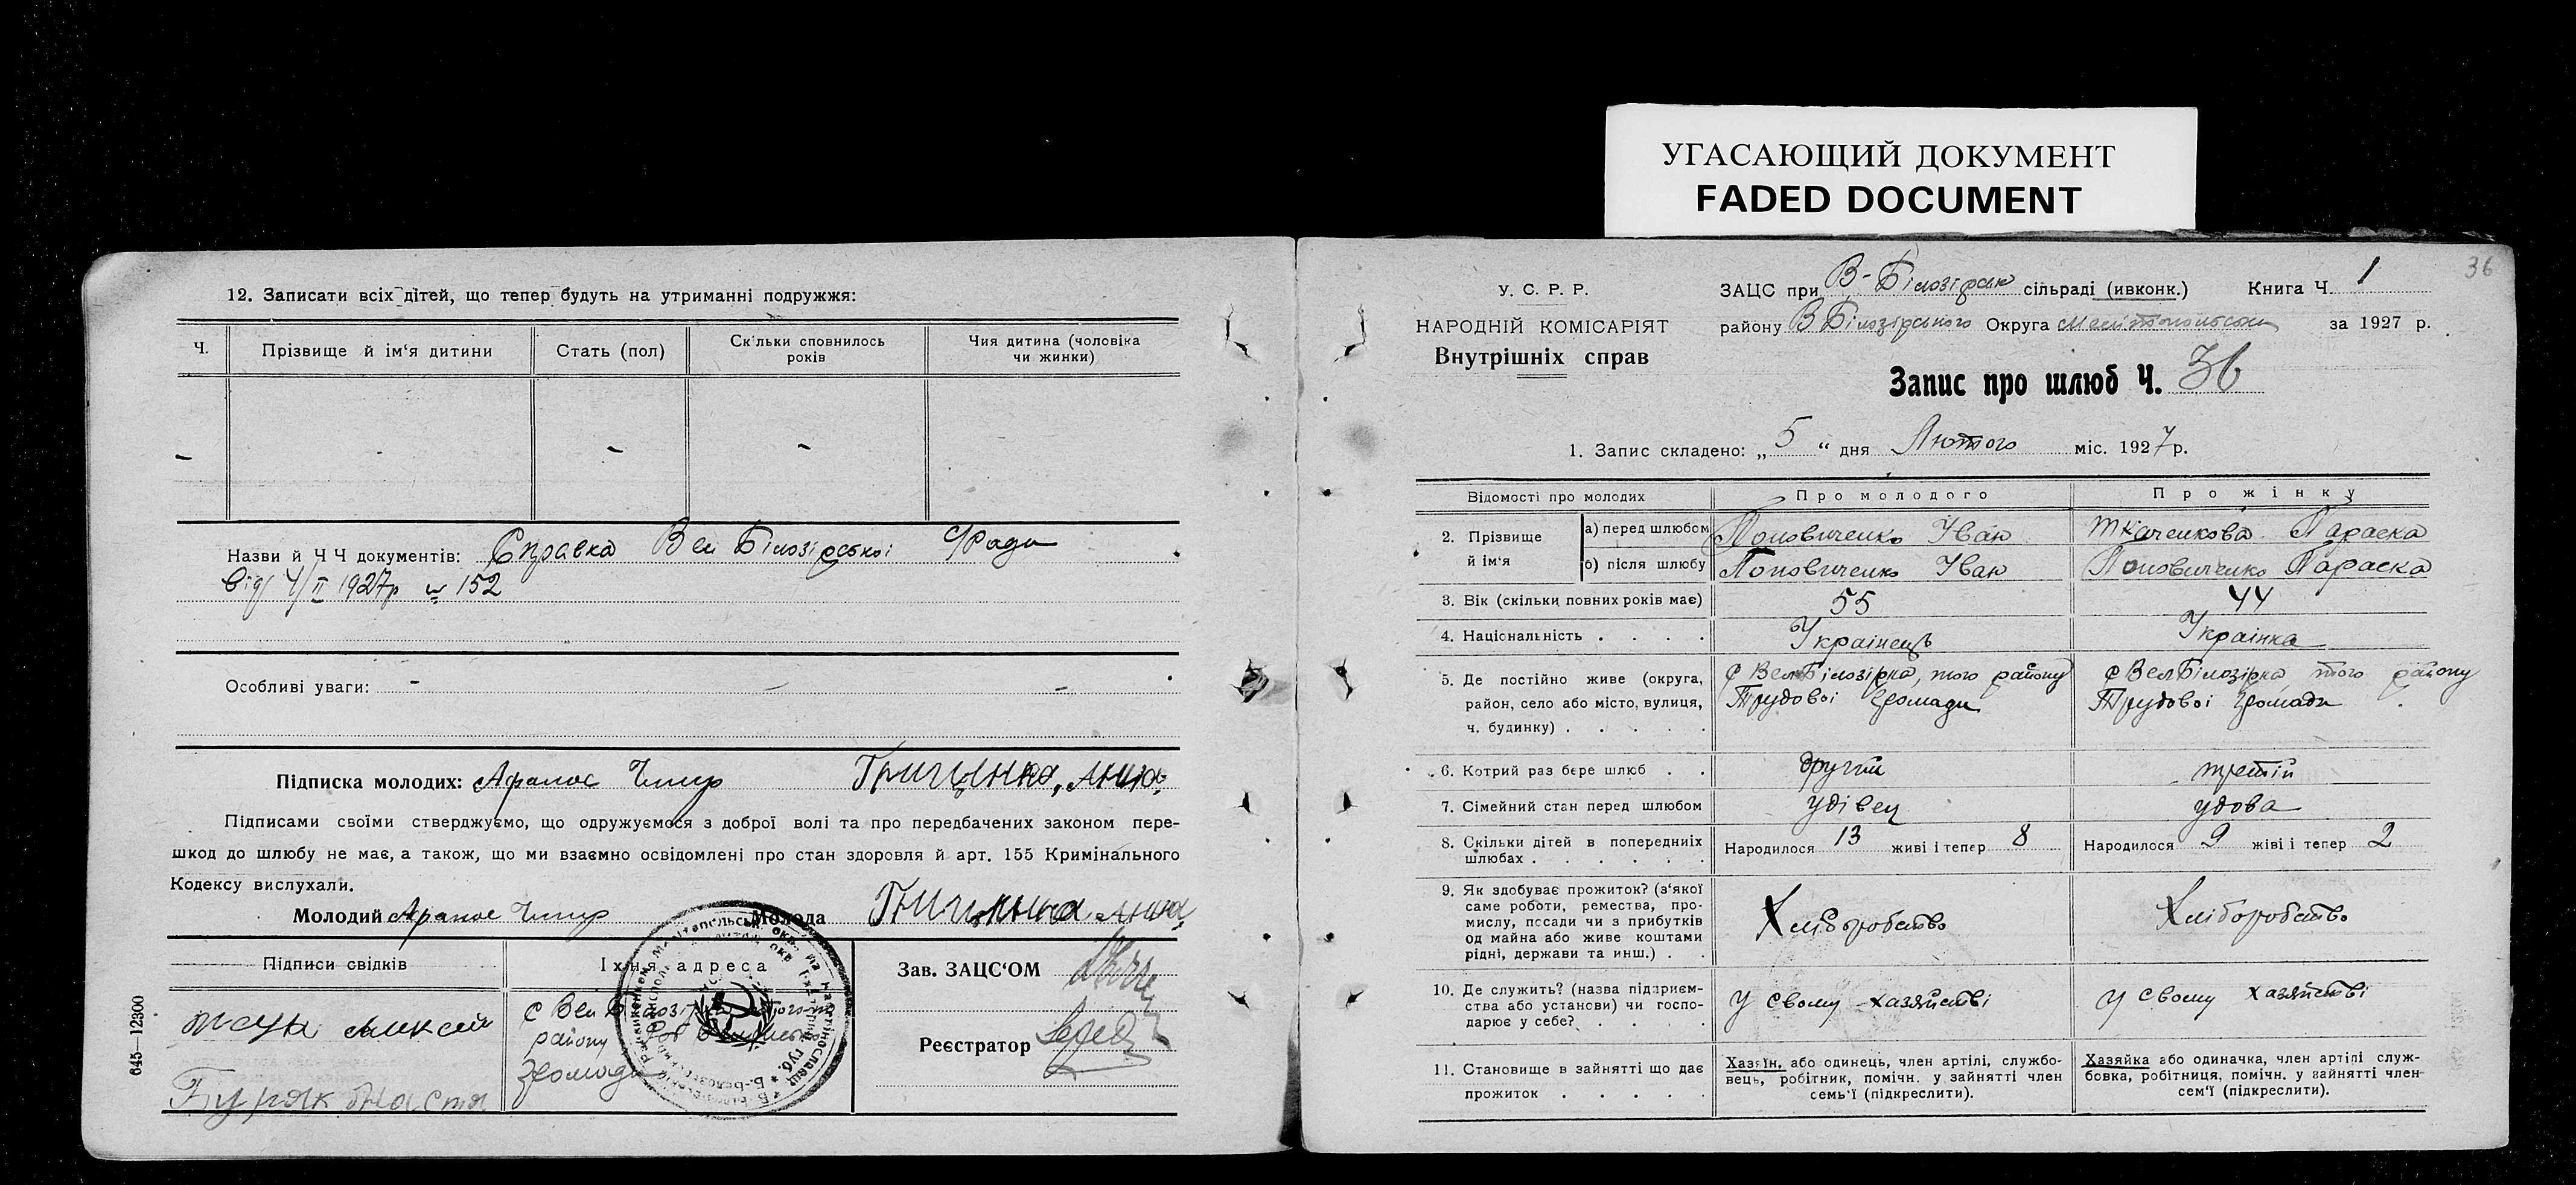 УГАСАЮЩИЙ ДОКУМЕНТ
FADED DOCUMENT
12. Записати всіх дітей, що тепер будуть на утриманні подружжя:
Ч.
Прізвище й ім'я дитини
Стать (пол)
Скільки сповнилось років
Чия дитина (чоловіка чи жинки)
Назви й Ч Ч документів: Справка Вел Білозірської С/Ради
від 4/II 1927р № 152
Особливі уваги: -
Підписка молодих: Афанас Грищенко, Анна
Підписами своїми стверджуємо, що одружуємося з доброї волі та про передбачених законом пере-
шкод до шлюбу не має, а також, що ми взаємно освідомлені про стан здоровля й арт. 155 Кримінального
Кодексу вислухали.
Молодий Афанас Молода
Підписи свідків
Їхня адреса
с Вел Білозірка того
району
Громади
Буряк
Зав. ЗАЦС'ОМ
Реєстратор
645—12300
36
У. С. Р. Р.
НАРОДНІЙ КОМІСАРІЯТ
Внутрішніх справ
ЗАЦС при В-Білозірськ сільраді (ивконк.) Книга Ч. 1
району В Білозірського Округа Мелітопольськ за 1927 р.
Запис про шлюб Ч. 36
1. Запис складено: „ 5 “ дня Лютого міс. 1927 р.
Відомості про молодих
Про молодого
Про жінку
2. Прізвище й ім'я
а) перед шлюбом Поповиченко Іван Ткаченкова Параска
б) після шлюбу Поповиченко Іван Поповиченко Параска
3. Вік (скільки повних років має) 55 44
4. Національність . . . . Українець Українка
5. Де постійно живе (округа,
район, село або місто, вулиця,
ч. будинку) . . . . .
с Вел Білозірка, того району
Трудової Громади
с Вел Білозірка того району
Трудової Громади
6. Котрий раз бере шлюб . . другий третій
7. Сімейний стан перед шлюбом удівец удова
8. Скільки дітей в попередніх
шлюбах . . . . . .
Народилося 13 живі і тепер 8
Народилося 9 живі і тепер 2
9. Як здобуває прожиток? (з'якої
саме роботи, ремества, про-
мислу, посади чи з прибутків
од майна або живе коштами
рідні, держави та инш.) . .
Хліборобство
Хліборобство
10. Де служить? (назва підприєм-
ства або установи) чи госпо-
дарює у себе? . . . .
у свому хазяйстві
у свому хазяйстві
11. Становище в зайнятті що дає
прожиток . . . . .
Хазяїн, або одинець, член артілі, службо-
вець, робітник, помічн. у зайнятті член
семь'ї (підкреслити).
Хазяйка або одиначка, член артілі служ-
бовка, робітниця, помічн. у зайнятті член
сем'ї (підкреслити).